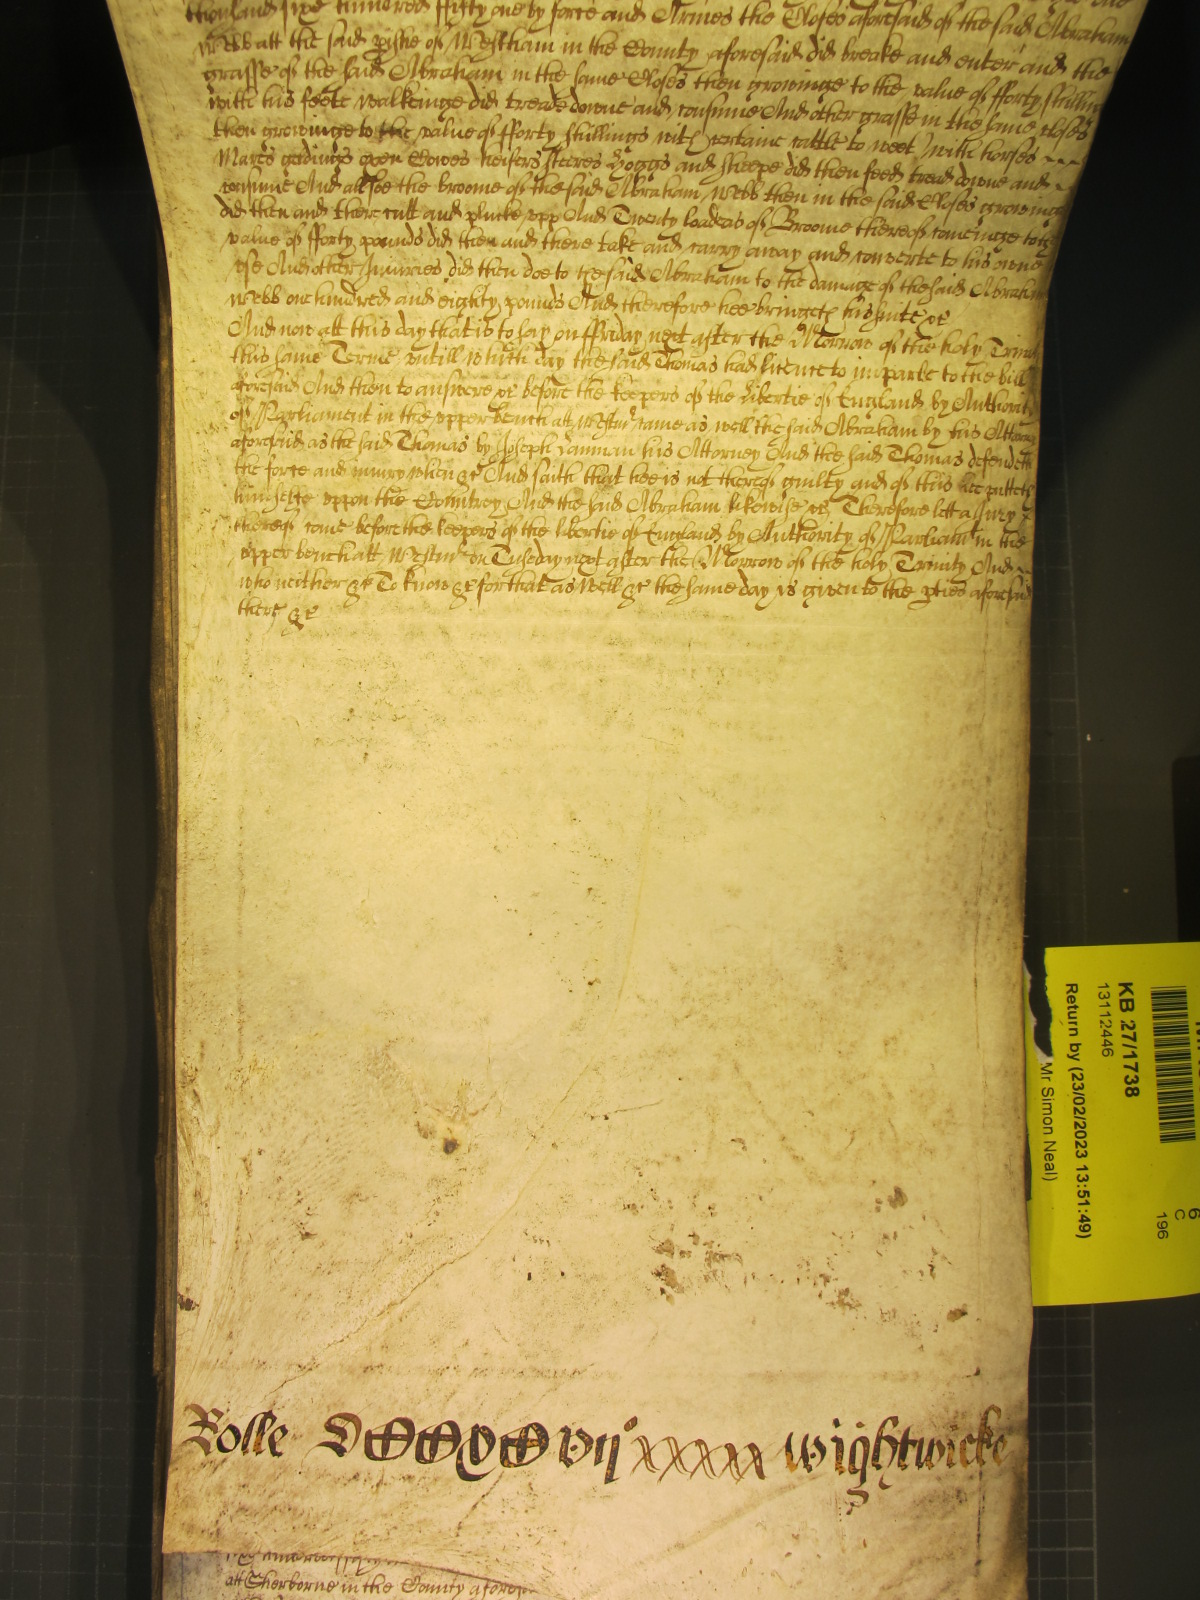 thousand sixe hundred ffifty one by force and Armes the Closes aforesaid of the said Abraham
Webb att the said pishe of Westham in the County aforesaid did breake and enter and the
grasse of the said Abraham in the same Closes then growinge to the value of fforty shillings
with his feete walkeinge did treade downe and consume And other grasse in the same closes
then growinge to the value of fforty shillings with certaine cattle to weet with horses
Mares geldings oxen Cowes heifers steeres Hoggs and sheepe did then feed tread downe and
consume And allsoe the broome of the said Abraham Webb then in the said Closes growinge
did then and there cutt and plucke vpp And Twenty loades of Broome thereof comeinge to the
value of fforty pounds did then and there take and carry away and converte to his owne
vse And other Injuries did then doe to the said Abraham to the damage of the said Abraham
Webb one hundred and eighty pounds And therefore hee bringeth his suite &c
And now att this day that is to say on ffriday next after the Morrow of the holy Trinity
this same Terme vntill which day the said Thomas had licence to imparle to the bill
aforesaid And then to answere &c before the keepers of the libertie of England by Authority
of Parliament in the vpper bench att Westmr came as well the said Abraham by his Attorney
aforesaid as the said Thomas by Joseph his Attorney And the said Thomas defendeth
the force and iniury when &c And saith that hee is not thereof guilty and of this hee putteth
himselfe vppon the Countrey And the said Abraham likewise &c Therefore lett a Jury
thereof come before the keepers of the libertie of England by Authority of Parliamt in the
vpper bench att Westmr on Tuesday next after the Morrow of the holy Trinity And
who neither &c To know &c for that as well &c the same day is given to the pties aforesaid
there &c
KB 27/1738
13112446
Return by (23/02/2023 13:51:49)
Mr Simon Neal)
6
C
196
Rolle Wightwicke
att Sherborne in the County